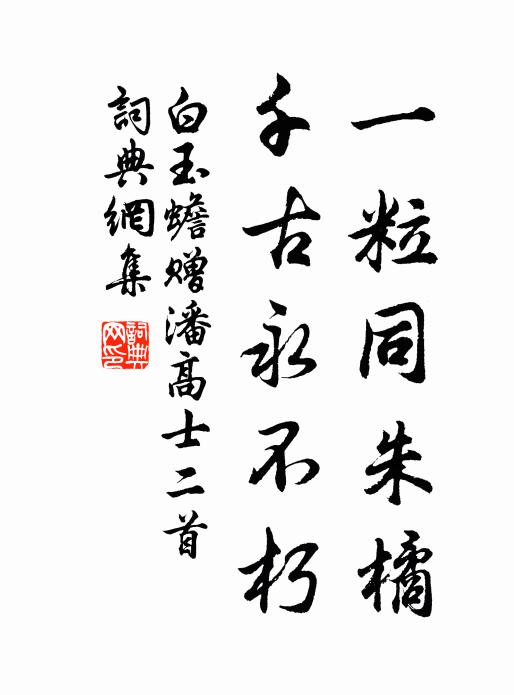 一粒同朱橘
千古永不朽
白玉蟾赠潘高士二首
詞典網集
詞典網印